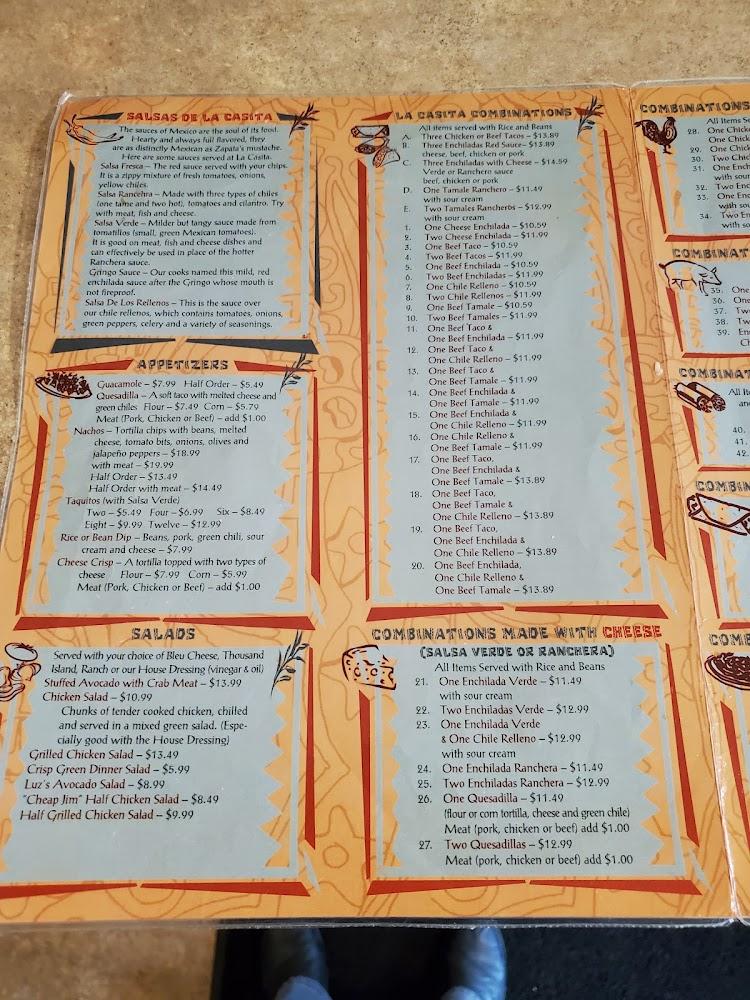 SALSAS DE LA CASITA
The sauces of Mexico are the soul of its food.
Hearty and always full flavored, they
are as distinctly Mexican as Zapata's mustache.
Here are some sauces served at La Casita.
Salsa Fresca – The red sauce served with your chips.
It is a zippy mixture of fresh tomatoes, onions,
yellow chiles.
Salsa Rancehra – Made with three types of chiles
(one tame and two hot), tomatoes and cilantro. Try
with meat, fish and cheese.
Salsa Verde – Milder but tangy sauce made from
tomatillos (small, green Mexican tomatoes).
It is good on meat, fish and cheese dishes and
can effectively be used in place of the hotter
Ranchera sauce.
Gringo Sauce – Our cooks named this mild, red
enchilada sauce after the Gringo whose mouth is
not fireproof.
Salsa De Los Rellenos – This is the sauce over
our chile rellenos, which contains tomatoes, onions,
green peppers, celery and a variety of seasonings.
APPETIZERS
Guacamole – $7.99 Half Order – $5.49
Quesadilla – A soft taco with melted cheese and
green chiles Flour – $7.49 Corn – $5.79
Meat (Pork, Chicken or Beef) – add $1.00
Nachos – Tortilla chips with beans, melted
cheese, tomato bits, onions, olives and
jalapeño peppers – $18.99
with meat – $19.99
Half Order – $13.49
Half Order with meat – $14.49
Taquitos (with Salsa Verde)
Two – $5.49 Four – $6.99 Six – $8.49
Eight – $9.99 Twelve – $12.99
Rice or Bean Dip – Beans, pork, green chili, sour
cream and cheese – $7.99
Cheese Crisp – A tortilla topped with two types of
cheese Flour – $7.99 Corn – $5.99
Meat (Pork, Chicken or Beef) – add $1.00
SALADS
Served with your choice of Bleu Cheese, Thousand
Island, Ranch or our House Dressing (vinegar & oil)
Stuffed Avocado with Crab Meat – $13.99
Chicken Salad – $10.99
Chunks of tender cooked chicken, chilled
and served in a mixed green salad. (Espe-
cially good with the House Dressing)
Grilled Chicken Salad – $13.49
Crisp Green Dinner Salad – $5.99
Luz's Avocado Salad – $8.99
"Cheap Jim" Half Chicken Salad – $8.49
Half Grilled Chicken Salad – $9.99
LA CASITA COMBINATIONS
All items served with Rice and Beans
A. Three Chicken or Beef Tacos – $13.89
B. Three Enchiladas Red Sauce – $13.89
cheese, beef, chicken or pork
C. Three Enchiladas with Cheese – $14.59
Verde or Ranchero sauce
beef, chicken or pork
D. One Tamale Ranchero – $11.49
with sour cream
E. Two Tamales Rancheros – $12.99
with sour cream
1. One Cheese Enchilada – $10.59
2. Two Cheese Enchilada – $11.99
3. One Beef Taco – $10.59
4. Two Beef Tacos – $11.99
5. One Beef Enchilada – $10.59
6. Two Beef Enchiladas – $11.99
7. One Chile Relleno – $10.59
8. Two Chile Rellenos – $11.99
9. One Beef Tamale – $10.59
10. Two Beef Tamales – $11.99
11. One Beef Taco &
One Beef Enchilada – $11.99
12. One Beef Taco &
One Chile Relleno – $11.99
13. One Beef Taco &
One Beef Tamale – $11.99
14. One Beef Enchilada &
One Beef Tamale – $11.99
15. One Beef Enchilada &
One Chile Relleno – $11.99
16. One Chile Relleno &
One Beef Tamale – $11.99
17. One Beef Taco,
One Beef Enchilada &
One Beef Tamale – $13.89
18. One Beef Taco,
One Beef Tamale &
One Chile Relleno – $13.89
19. One Beef Taco,
One Beef Enchilada &
One Chile Relleno – $13.89
20. One Beef Enchilada,
One Chile Relleno &
One Beef Tamale – $13.89
COMBINATIONS MADE WITH CHEESE
(SALSA VERDE OR RANCHERA)
All Items Served with Rice and Beans
21. One Enchilada Verde – $11.49
with sour cream
22. Two Enchiladas Verde – $12.99
23. One Enchilada Verde
& One Chile Relleno – $12.99
with sour cream
24. One Enchilada Ranchera – $11.49
25. Two Enchiladas Ranchera – $12.99
26. One Quesadilla – $11.49
(flour or corn tortilla, cheese and green chile)
Meat (pork, chicken or beef) add $1.00
27. Two Quesadillas – $12.99
Meat (pork, chicken or beef) add $1.00
COMBINATIONS
All Items
28. One Chick
One Chick
29. One Chick
30. Two Chick
31. One Ench
with sour
32. Two En
33. One En
with sou
34. Two En
with so
COMBINAT
35. One
36. One
37. Two
38. Two
39. En
Ch
COMBINAT
All It
an
40.
41.
42.
COMBIN
COMB